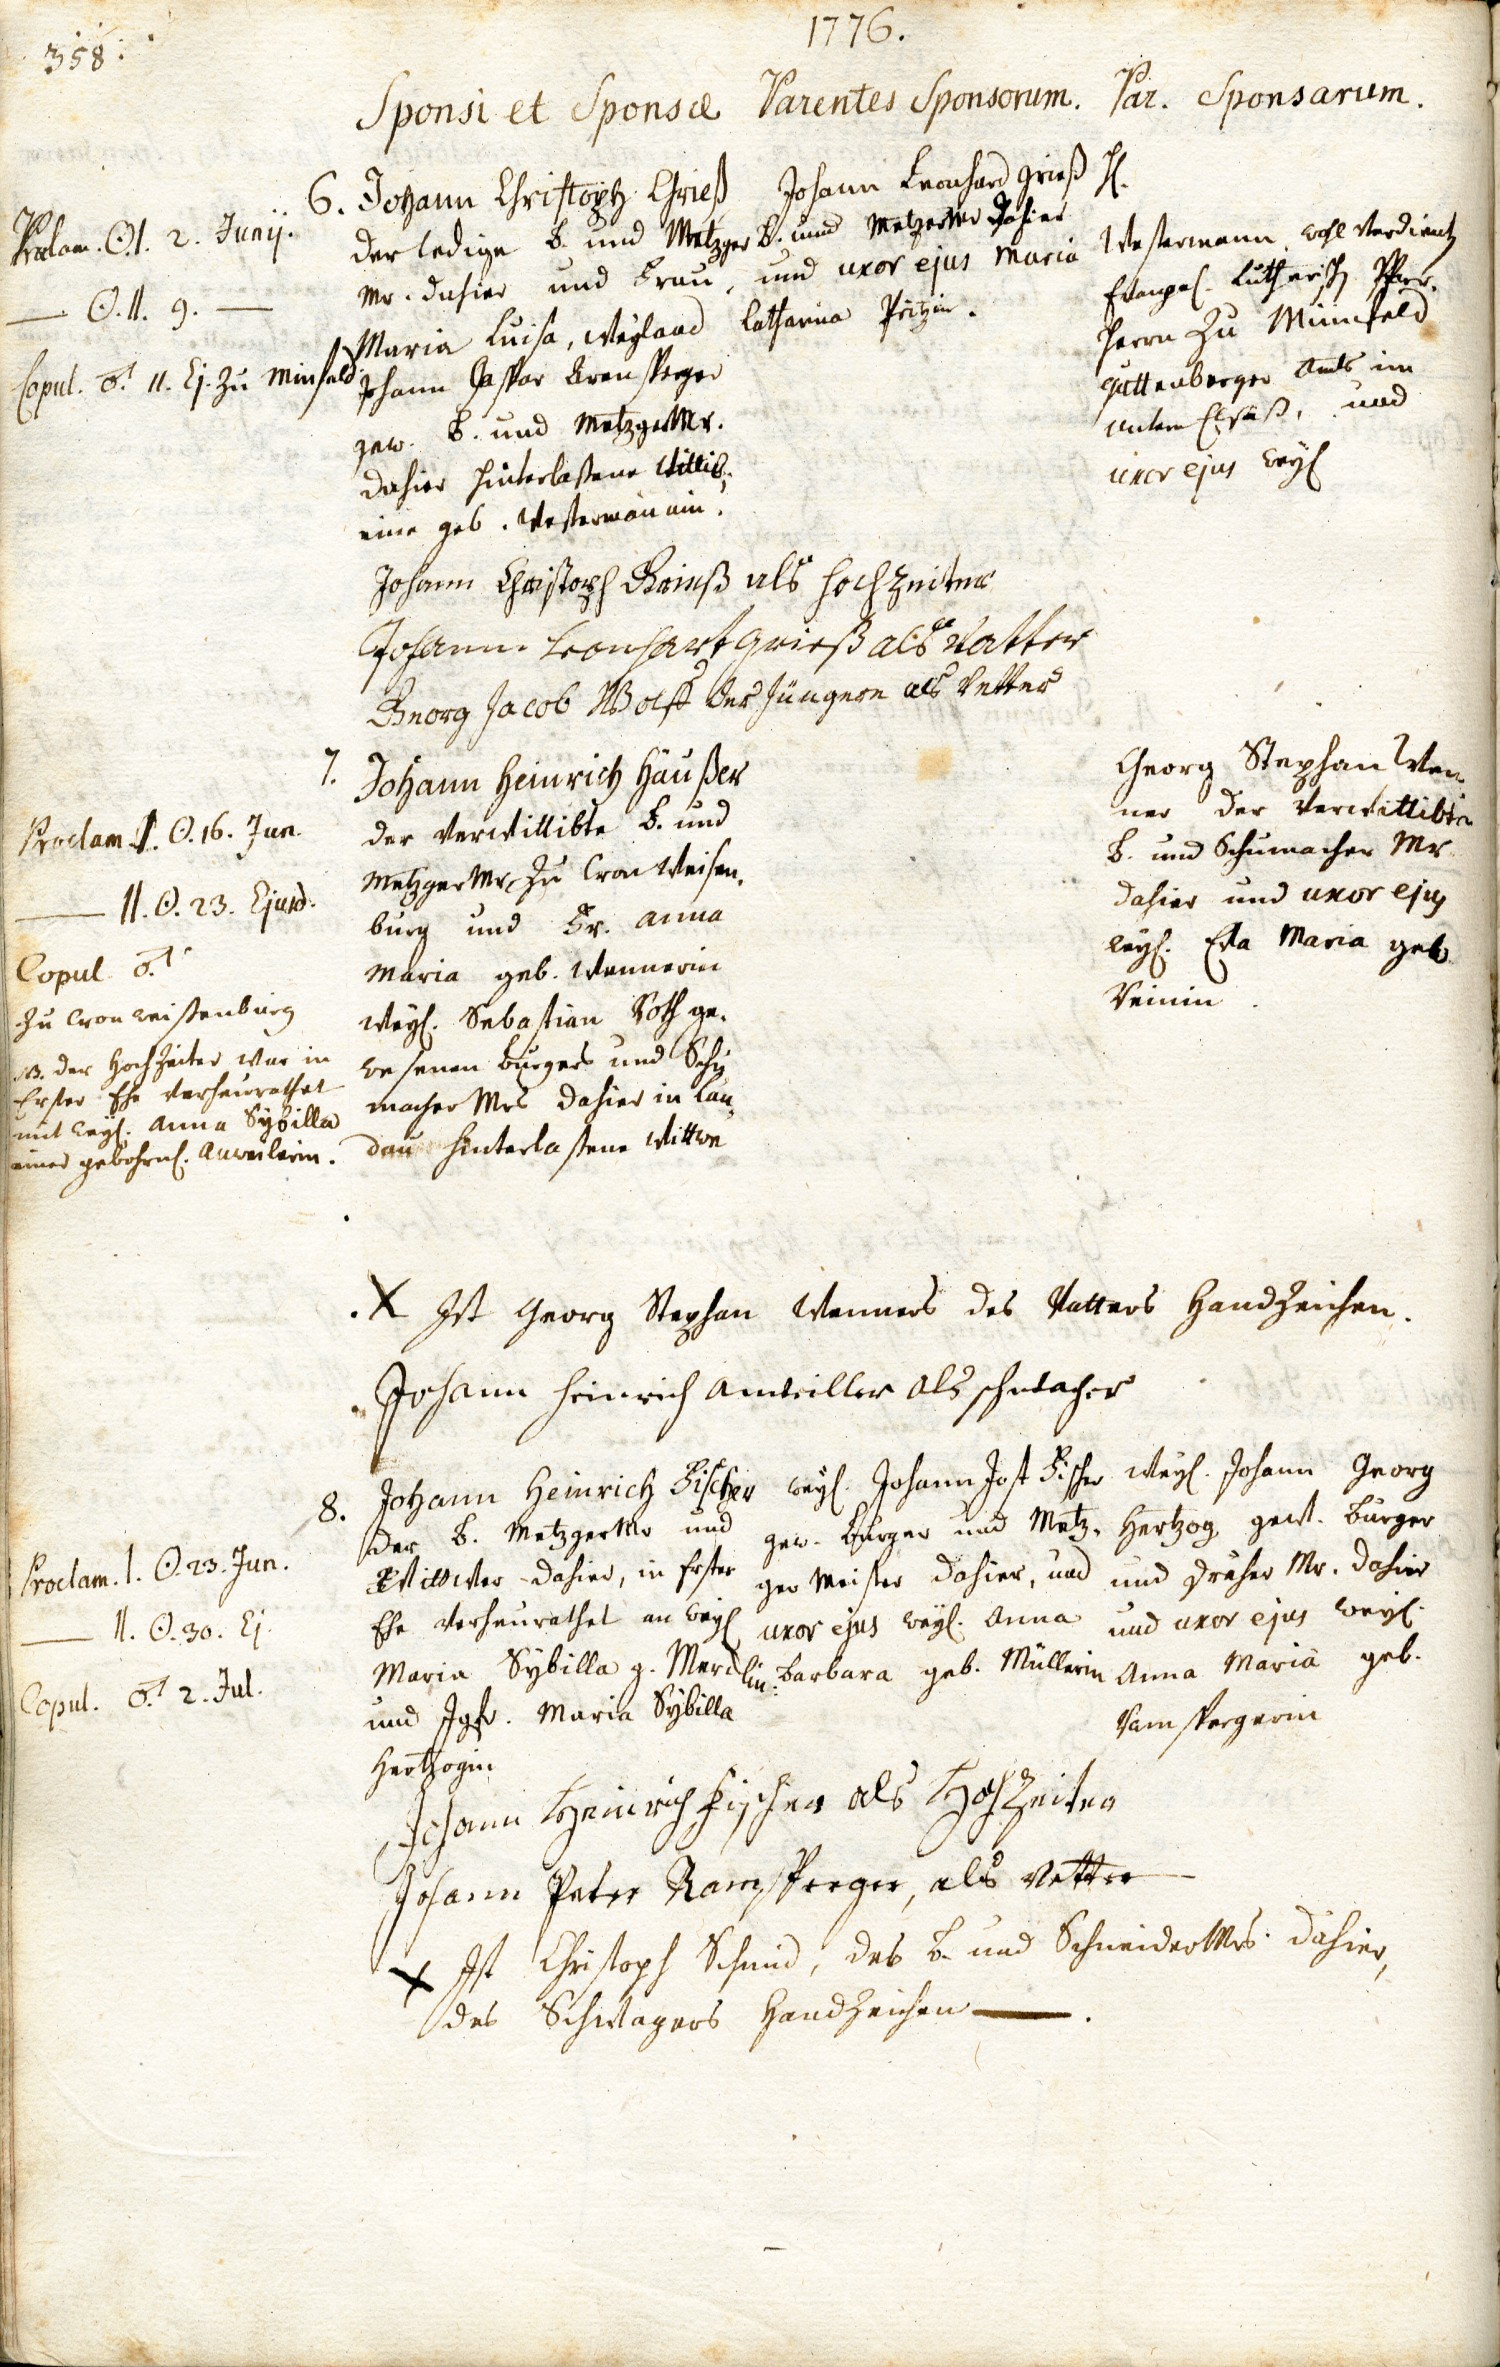 358.
1776.
Sponsi et Sponsæ
Parentes Sponsorum.
Par. Sponsarum.
Proclam. ☉. I. 2. Junij.
— ☉. II. 9. —
Copul. ♂. 11. Ej. zu Minfeld
6. Johann Christoph Grieß
der ledige B. und Metzger
Mr. dahier und Frau
Maria Luisa, weyland
Johann Caspar
gew. B. und MetzgerMr.
dahier hinterlaßene Wittib,
eine geb. Westermännin.
Johann Leonhard Grieß
B. und MetzgerMr dahier
und uxor ejus Maria
Catharina
H.
Westermann, wohl verdient
Evangel. Lutherisch Pfar-
herrn zu Minnfeld
Guttenberger Amts im
untern Elsaß, und
uxor ejus weyl
Johann Christoph Grieß als Hochzeiter
Johann Leonhart Grieß als Vatter
Georg Jacob Wolff der Jüngere als Vetter
Proclam. I. ☉. 16. Jun.
— II. ☉. 23. Ejusd.
Copul. ♂.
zu Cronweissenburg
NB. der Hochzeiter war in
Erster Ehe verheurathet
mit weyl. Anna Sybilla
einer gebohrnl. Anweilerin.
7. Johann Heinrich Häußer
der verwittibte B. und
MetzgerMr zu Cron Weisen-
burg und Fr. Anna
Maria geb. Wennerin
weyl. Sebastian Roth ge-
wesenen Burgers und Schu
macher Mrs dahier in Lan-
dau hinterlaßene Wittwe
Georg Stephan Wen-
ner der verwittibte
B. und Schumacher Mr
dahier und uxor ejus
weyl. Eva Maria geb.
X Ist Georg Stephan Wenners des Vatters Handzeichen.
Johann Heinrich Anweiller als schwacher
Proclam. I. ☉. 23. Jun.
— II. ☉. 30. Ej.
Copul. ♂. 2. Jul.
8. Johann Heinrich Fischer
der B. MetzgerMr und
Wittwer dahier, in Erster
Ehe verheurathet an weyl
Maria Sybilla g. Merdlin.
und Jgfr. Maria Sybilla
Hertzogin
weyl. Johann Jost Fischer
gew. Burger und Metz-
ger Meister dahier, und
uxor ejus weyl. Anna
Barbara geb. Müllerin
weyl. Johann Georg
Hertzog gew. Burger
und Dreher Mr. dahier
und uxor ejus weyl.
Anna Maria geb.
Ramspergerin
Johann Heinrich Fischer als Hochzeiter
Johann Peter Ramsperger, als Vetter
X Ist Christoph Schmid, des B. und SchneiderMrs dahier,
des Schwagers Handzeichen —.